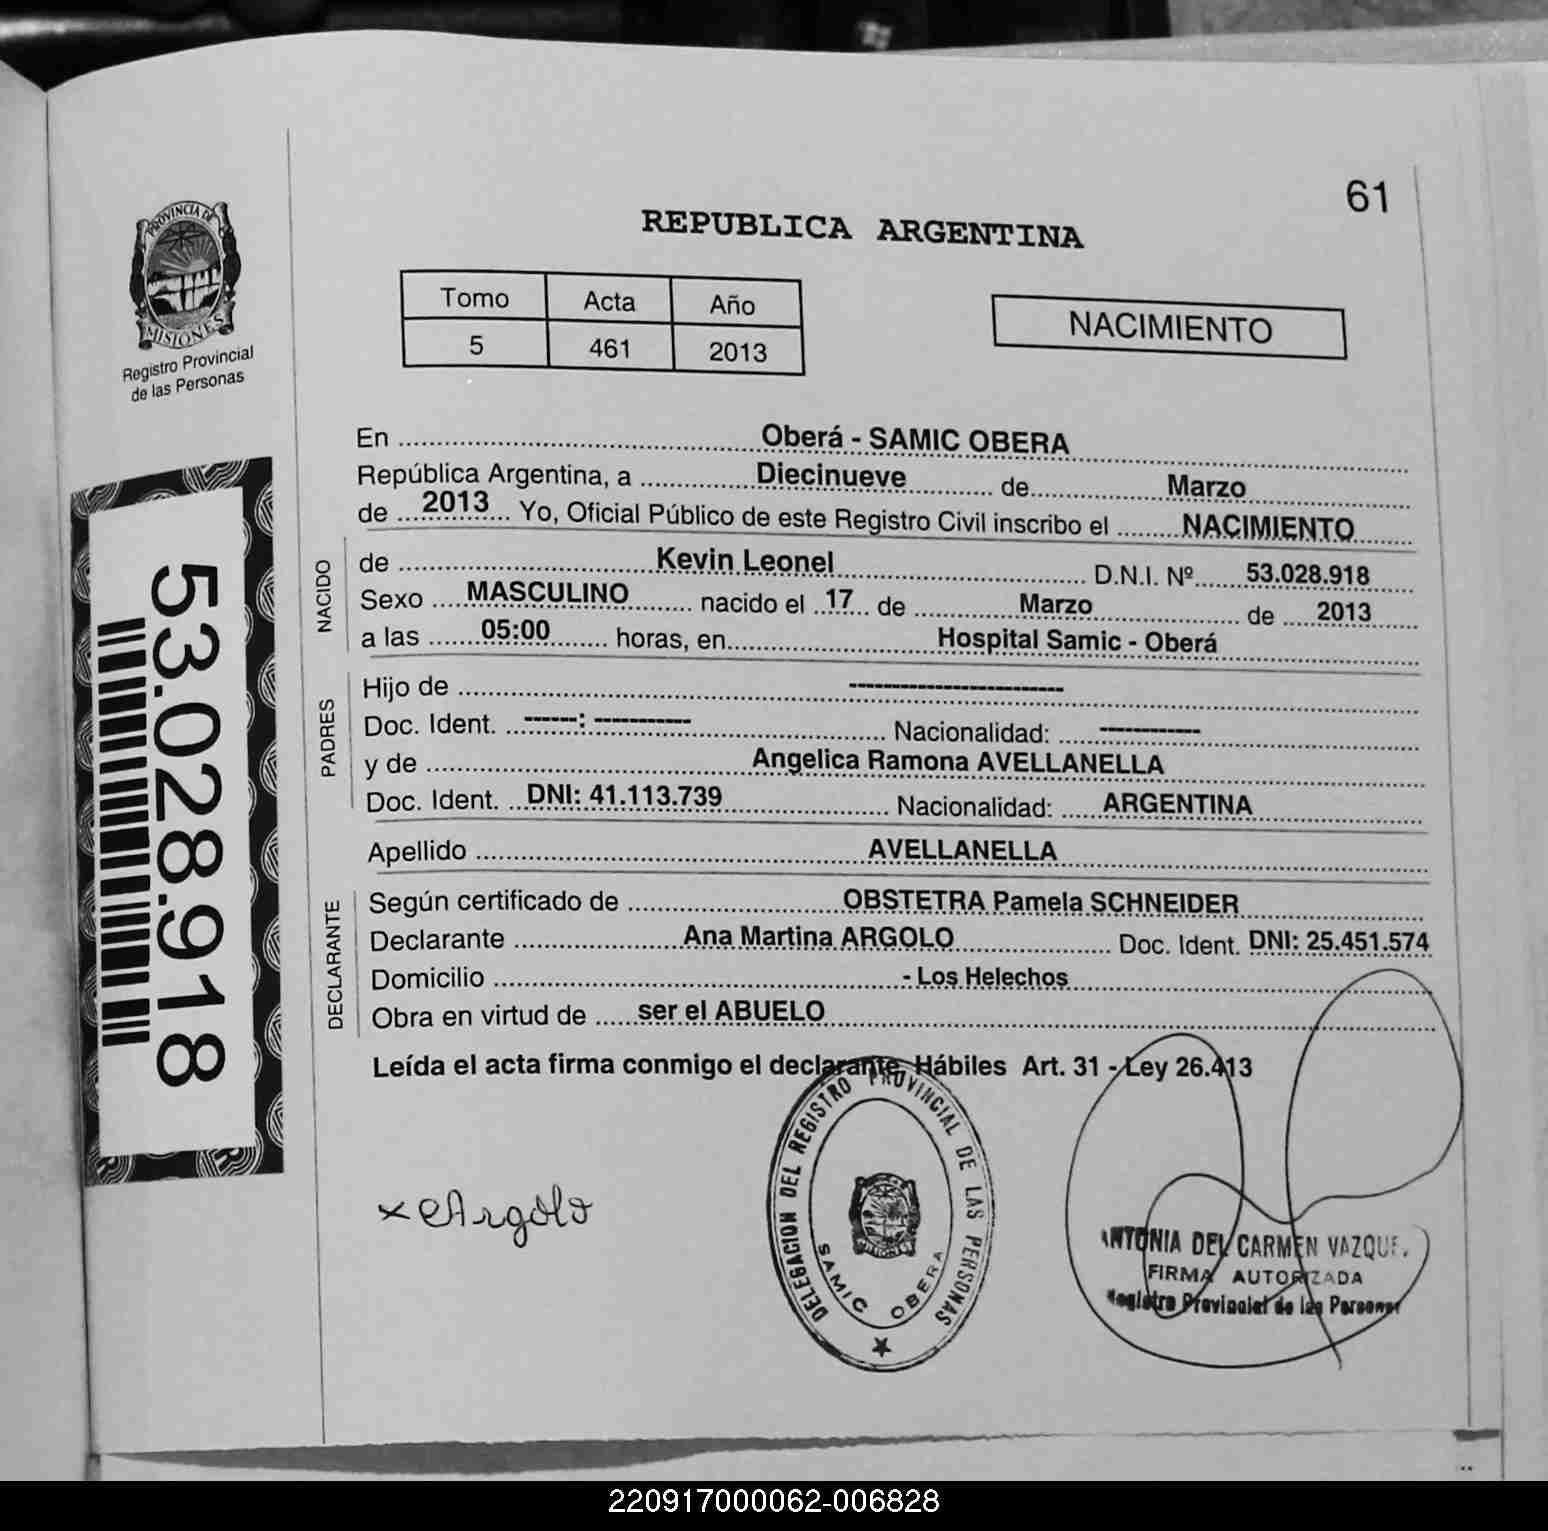 61
PROVINCIA DE
MISIONES
Registro Provincial
de las Personas
REPUBLICA ARGENTINA
Tomo Acta Año
5 461 2013
NACIMIENTO
En Oberá - SAMIC OBERA
República Argentina, a Diecinueve de Marzo
de 2013 Yo, Oficial Público de este Registro Civil inscribo el NACIMIENTO
NACIDO
de Kevin Leonel D.N.I. Nº 53.028.918
Sexo MASCULINO nacido el 17 de Marzo de 2013
a las 05:00 horas, en Hospital Samic - Oberá
PADRES
Hijo de ------------------------
Doc. Ident. ------: ----------- Nacionalidad: ------------
y de Angelica Ramona AVELLANELLA
Doc. Ident. DNI: 41.113.739 Nacionalidad: ARGENTINA
Apellido AVELLANELLA
DECLARANTE
Según certificado de OBSTETRA Pamela SCHNEIDER
Declarante Ana Martina ARGOLO Doc. Ident. DNI: 25.451.574
Domicilio - Los Helechos
Obra en virtud de ser el ABUELO
Leída el acta firma conmigo el declarante Hábiles Art. 31 - Ley 26.413
53.028.918
x Argolo
DELEGACION DEL REGISTRO PROVINCIAL DE LAS PERSONAS
MISIONES
SAMIC OBERA
ANTONIA DEL CARMEN
FIRMA AUTORIZADA
Registro Provincial de las Personas
220917000062-006828